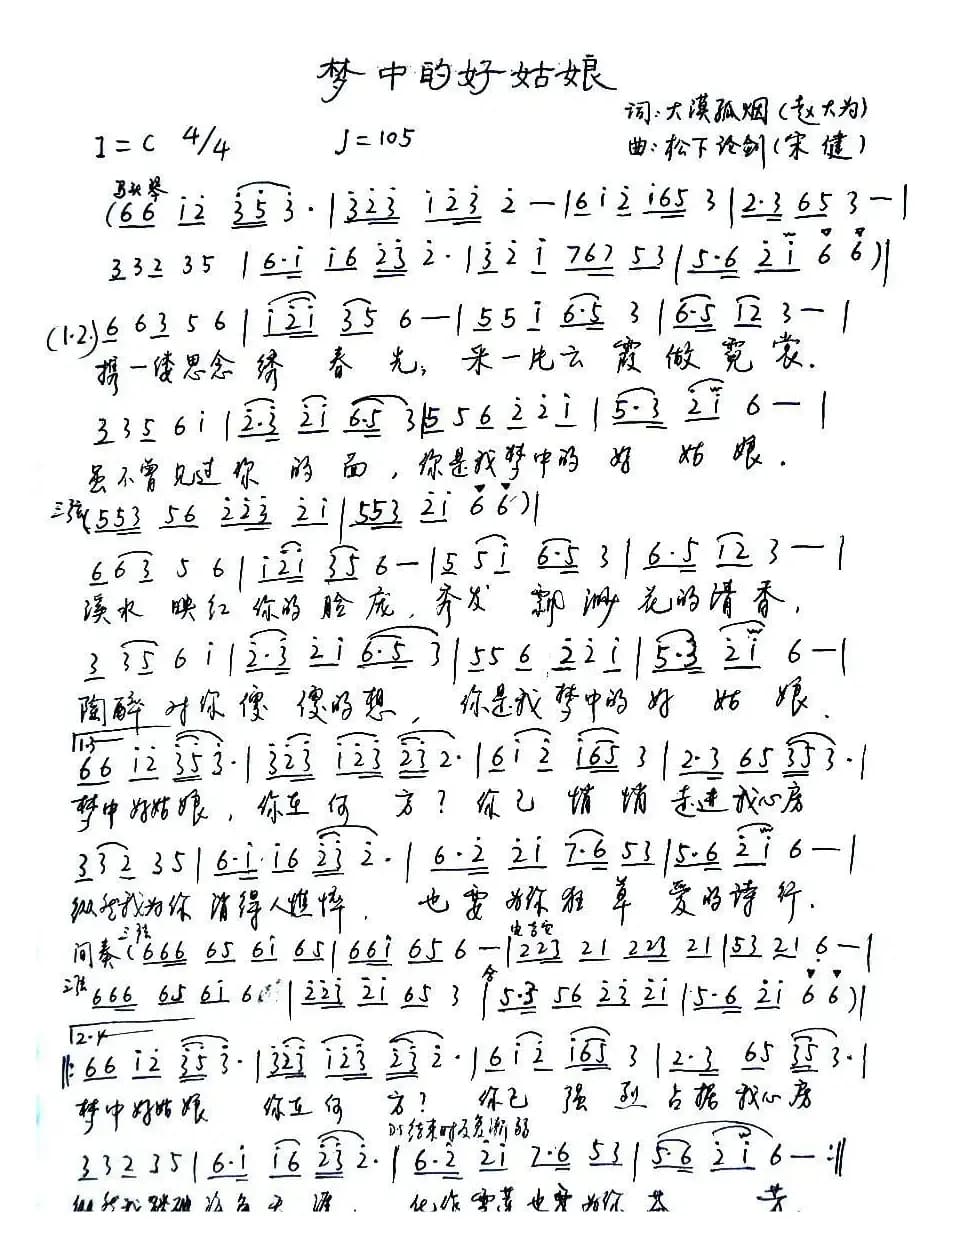 梦中的好姑娘
词:大漠孤烟(赵大为)
1=C 4/4 J=105
曲:松下论剑(宋健)
马头琴
(66 i2 35 3· | 323 i23 2 — | 6i2 i65 3 | 2·3 65 3 — |
332 35 | 6·i i6 23 2· | 32i 767 53 | 5·6 2i 6 6) |
(1·2·) 6 63 5 6 | i2i 35 6 — | 55i 6·5 3 | 6·5 i2 3 — |
携一缕思念绣春光,采一片云霞做霓裳.
335 6i | 2·3 2i 6·5 3 | 556 22i | 5·3 2i 6 — |
虽不曾见过你的面,你是我梦中的好姑娘.
三弦(553 56 223 2i | 553 2i 6 6) |
663 5 6 | i2i 35 6 — | 5 5i 6·5 3 | 6·5 i2 3 — |
溪水映红你的脸庞,秀发飘渺花的清香,
3 35 6 i | 2·3 2i 6·5 3 | 55 6 22i | 5·3 2i 6 — |
陶醉对你傻傻的想,你是我梦中的好姑娘.
1.3
66 i2 353· | 323 i23 23 2· | 6i2 i65 3 | 2·3 65 35 3· |
梦中好姑娘,你在何方?你已悄悄走进我心房
332 35 | 6·i·i6 23 2· | 6·2 2i 7·6 53 | 5·6 2i 6 — |
纵然我为你消得人憔悴,也要为你狂草爱的诗行.
三弦
间奏(666 65 6i 65 | 66i 65 6 — | 223 21 223 21 | 53 21 6 — |
三弦 666 65 6i 6 | 223 2i 65 3 | 5·3 56 23 2i | 5·6 2i 6 6) |
合
2.4
‖: 66 i2 35 3· | 323 i23 23 2· | 6i2 i65 3 | 2·3 65 35 3· |
梦中好姑娘 你在何方? 你已强烈占据我心房
结束时 渐弱
332 35 | 6·i i6 23 2· | 6·2 2i 7·6 53 | 5·6 2i 6 — :‖
纵然我 也要为你